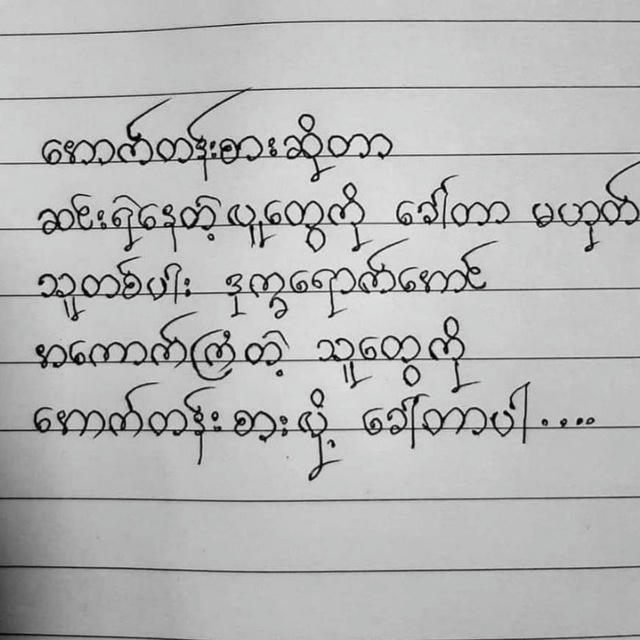 အောက်တန်းစားဆိုတာ
ဆင်းရဲနေတဲ့လူတွေကို ခေါ်တာ မဟုတ်
သူတစ်ပါး ဒုက္ခရောက်အောင်
အကောက်ကြံတဲ့ သူတွေကို
အောက်တန်းစားလို့ ခေါ်တာပါ....